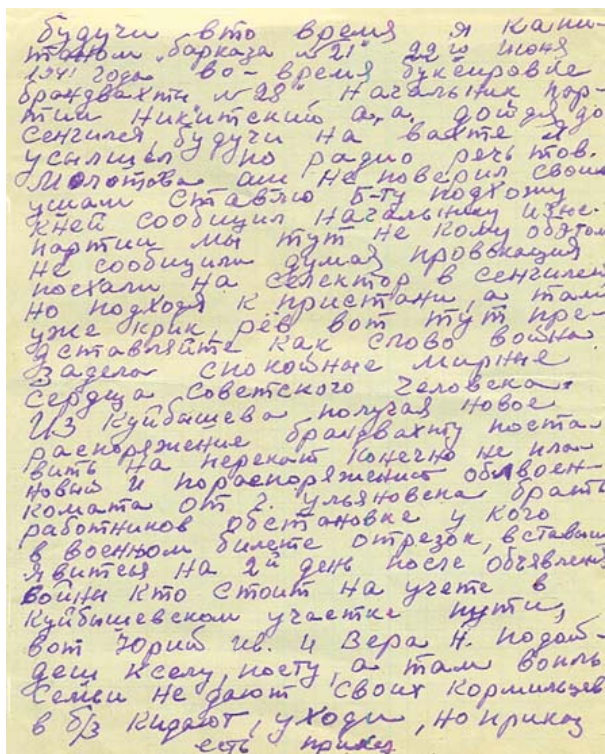 будучи вто время я капи-
таном „барказа №21" 22го июня
1941 года. во-время буксировке
брандвахти №28", начальник пар-
тии Никитский а,а. дойдя до
Сенгилея, будучи на вахте я
услишел по радио речь тов.
Молотова аш не поверил своим
ушам ставлю б-ту подхожу
кней сообщил начальнику изыс.
партии мы тут не кому обэтом
не сообщили думая провокация
поехали на селектор в сенгилей
но подходя к пристани, а там
уже крик, рёв вот тут пре-
дставляйте как слово война
Задела спокойные мирные
сердца советского человека.
Из Куйбышева получая новое
распоряжение брандвахту поста-
вить на перекат конечно не пла-
новый и пораспоряжению облвоен-
комата от г. ульяновска брать
работников обстановке у кого
в военном билете отрезок, вставыш
явиться на 2й день после объявления
войны кто стоит на учете в
Куйбышевском участке пути,
вот Юрий ив. и Вера Н. подой-
деш кселу, посту, а там вопль
Семьи не дают своих кормильцев
в б/з кидают, уходи, но приказ
есть приказ